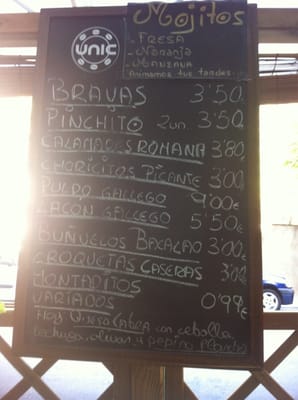 UNIC
Mojitos
- FRESA
- Naranja
- MANZANA
Animamos tus tardes
BRAVAS 3'50
PINCHITO 2un. 3'50
CALAMARES ROMANA 3'80
CHORICITOS PICANTE 3'00
PULPO GALLEGO 9'00€
LACÓN GALLEGO 5'50
BUÑUELOS BACALAO 3'00
CROQUETAS CASERAS 3'00
MONTADITOS
VARIADOS 0'99€
Hoy Queso Cabra con cebolla
lechuga, olivas, y pepino